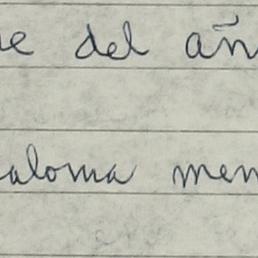 e del añ
aloma men